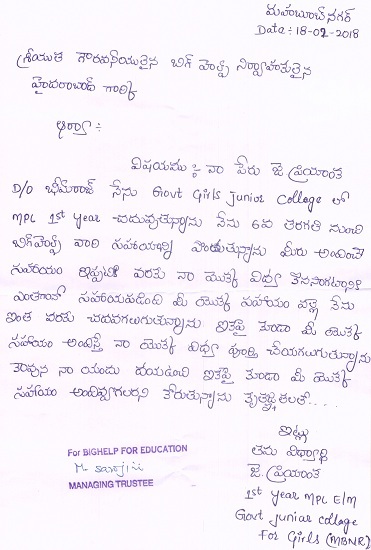 మహబూబ్ నగర్
Date: 18-02-2018
శ్రీయుత గౌరవనీయులైన బిగ్ హెల్ప్ నిర్వాహకులైన
హైదరాబాద్ గారికి
ఆర్యా :
విషయము :- నా పేరు జె ప్రియాంక
D/O భీమరాజ్ నేను Govt Girls Junior College లో
MPC 1st Year చదువుతున్నాను నేను 6వ తరగతి నుంచి
బిగ్‌హెల్ప్ వారి సహాయాన్ని పొందుతున్నాను మీరు అందించే
సహాయం ఇప్పటి వరకు నా యొక్క విద్య కొనసాగటానికి
ఎంతగానో సహాయపడింది మీ యొక్క సహాయం వల్లే నేను
ఇంత వరకు చదవగలుగుతున్నాను ఇకపై కూడా మీ యొక్క
సహాయం అందిస్తే నా యొక్క విద్య పూర్తి చేయగలుగుతున్నాను
కావున నా యందు దయఉంచి ఇకపై కూడా మీ యొక్క
సహాయం అందివ్వగలరని కోరుతున్నాను కృతజ్ఞతలతో...
ఇట్లు
తమ విద్యార్థి
జె. ప్రియాంక
1st Year MPC E/M
Govt Junior College
For Girls (MBNR)
For BIGHELP FOR EDUCATION
MANAGING TRUSTEE